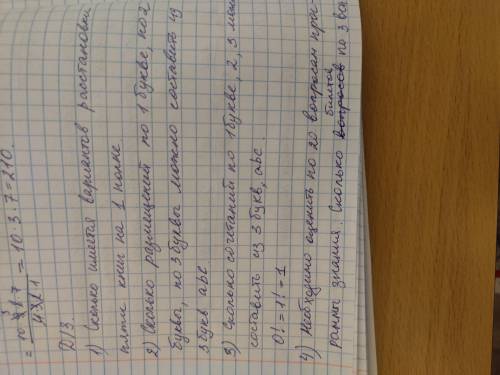 = 10 3 8 7 / 4 3 2 1 = 10 · 3 · 7 = 210.
Д/З.
1) Сколько имеется вариантов расстановки
пяти книг на 1 полке
2) Сколько размещений по 1 букве, по 2
буквы, по 3 буквы можно составить из
3 букв abc
3) Сколько сочетаний по 1 букве, 2, 3 можн
составить из 3 букв, abc.
0! = 1! = 1
4) Необходимо оценить по 20 вопросам прог-
билетов
раммы знания. Сколько вопросов по 3 во